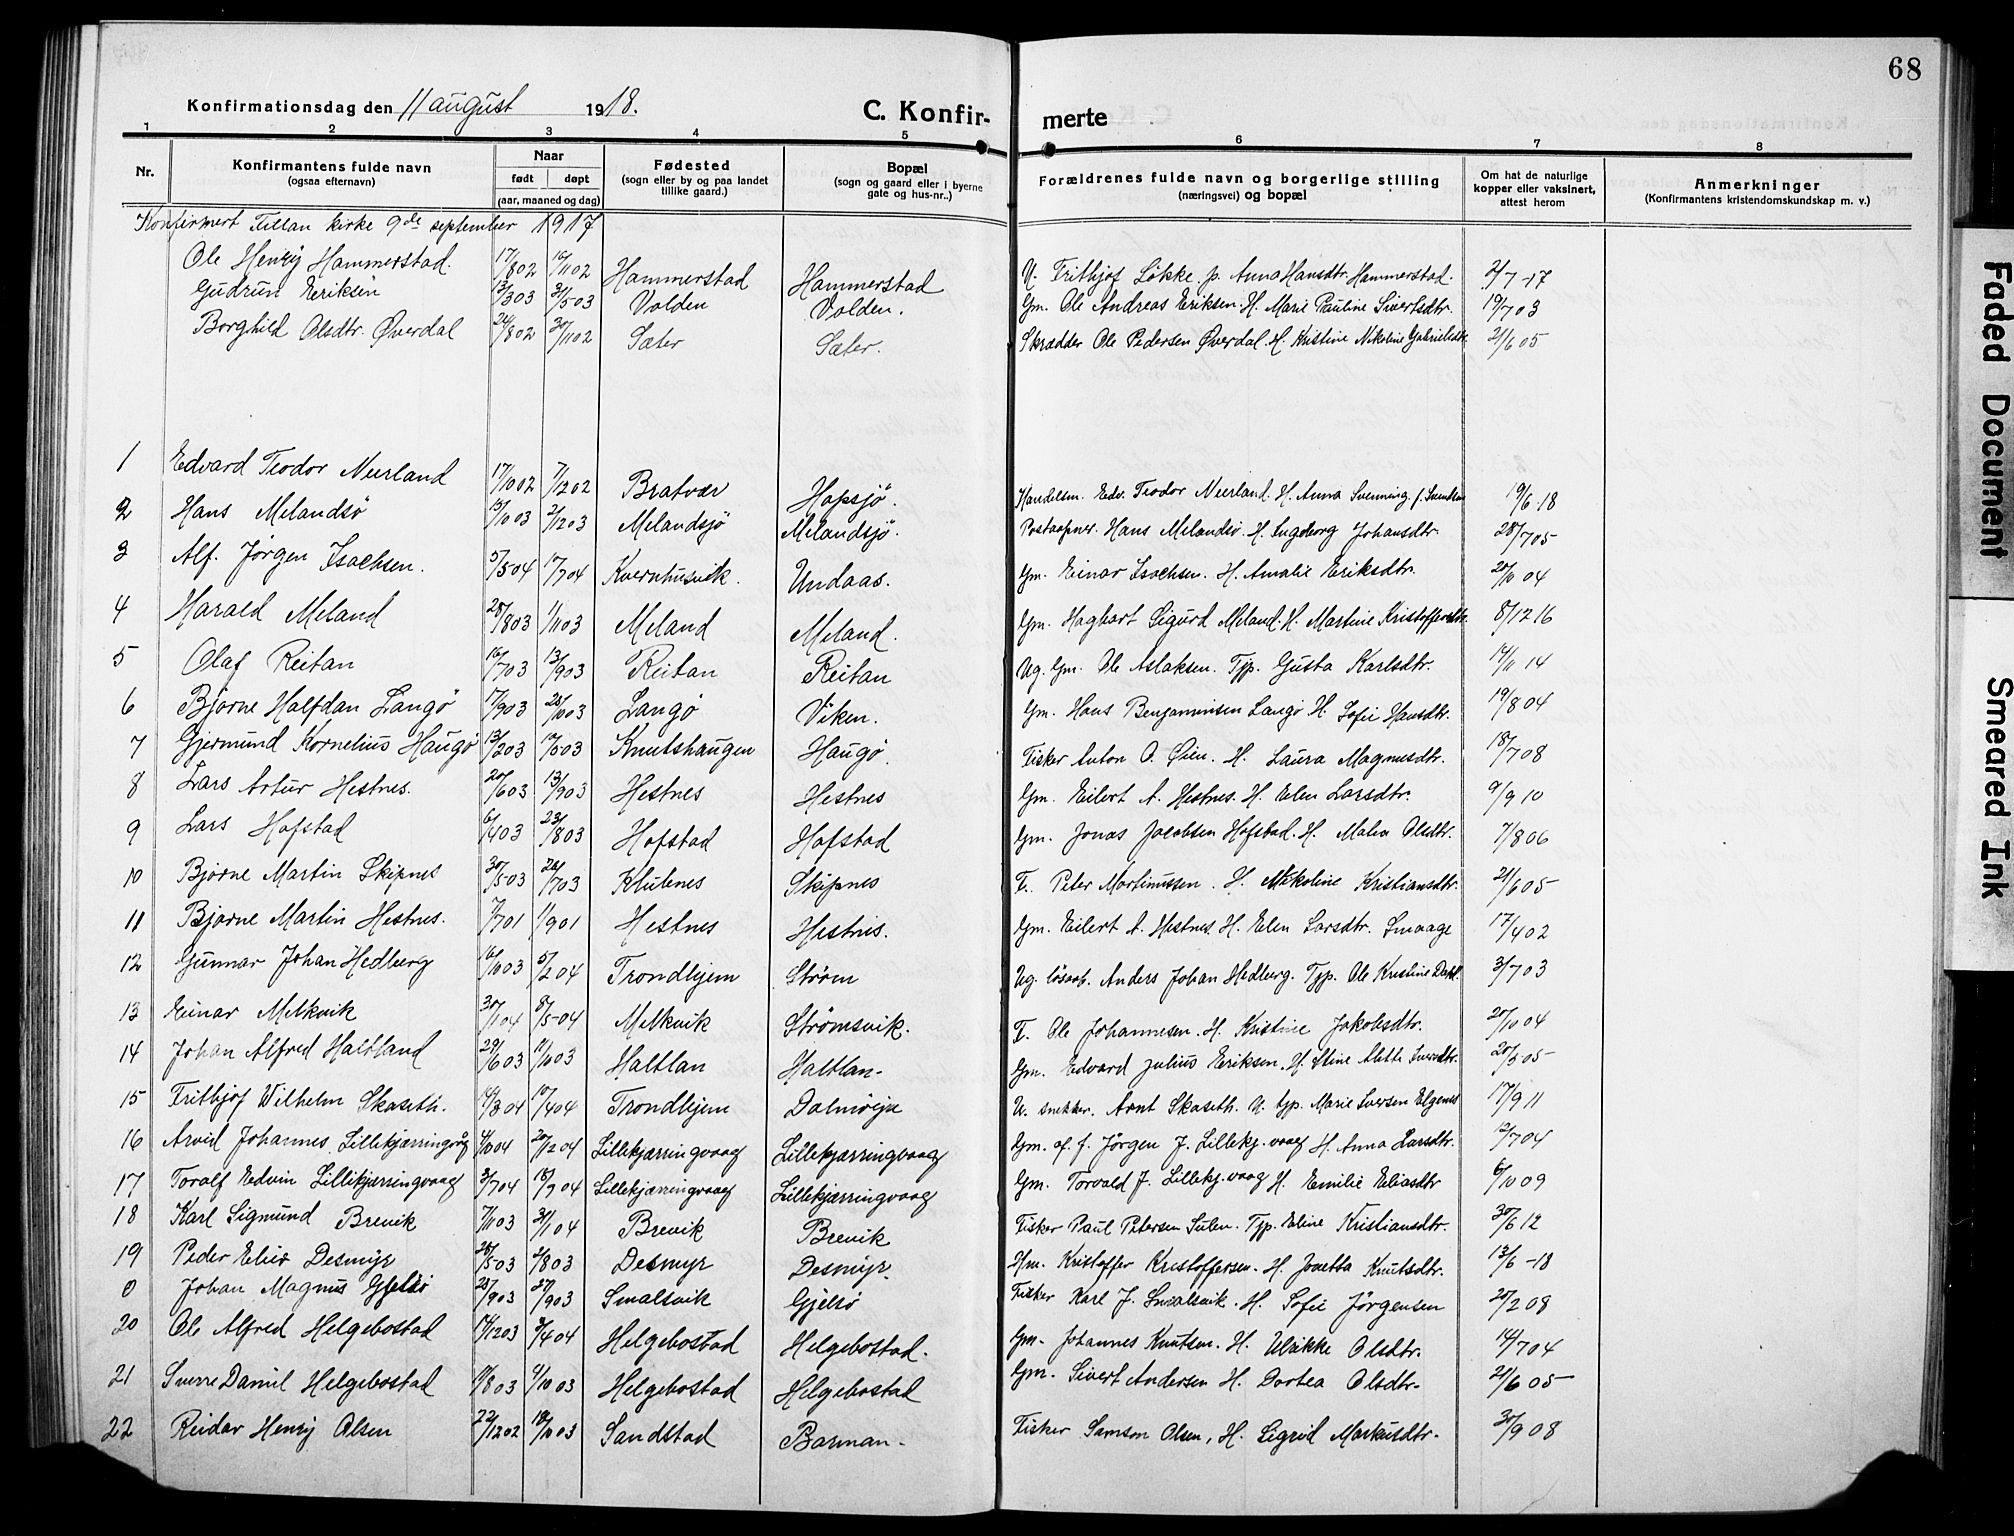 68
Konfirmationsdag den 11 august 1918.
C. Konfir- merte
1 2 3 4 5 6 7 8
Nr. Konfirmantens fulde navn (ogsaa efternavn) Naar født døpt (aar, maaned og dag) Fødested (sogn eller by og paa landet tillike gaard.) Bopæl (sogn og gaard eller i byerne gate og hus-nr..) Forældrenes fulde navn og borgerlige stilling (næringsvei) og bopæl Om hat de naturlige kopper eller vaksinert, attest herom Anmerkninger (Konfirmantens kristendomskundskap m. v.)
Konfirmert Fillan kirke 9de september 1917
Ole Henrij Hammerstad. 17/802 16/1102 Hammerstad Hammerstad U. Fritbjof Løkke. p. Anna Hansdtr. Hammerstad. 2/7-17
Gudrun Eriksen 13/303 31/503 Volden Volden. Gm. Ole Andreas Eriksen. H. Marie Pauline Sivertsdtr. 19/703
Borghild Olsdtr. Øverdal 24/802 30/1102 Sæter Sæter. Skrædder Ole Pedersen Øverdal. H. Kristine Nikoline Gabrielsdtr. 21/605
1 Edvard Teodor Neerland 17/1002 7/1202 Bratvær Hopsjö. Handelsm. Edv. Teodor Neerland. H. Anna Svenning f. 19/6.18
2 Hans Melandsö 13/1003 2/1203 Melandsjö Melandsjö. Postaapner. Hans Melandsö. H. Ingeborg Johansdtr. 28/705
3 Alf. Jørgen Isachsen. 5/504 17/704 Kvernhusvik. Undaas. Gm. Einar Isachsen. H. Amalie Eriksdtr. 20/1004
4 Harald Meland 28/803 1/1103 Meland Meland. Gm. Hagbart Sigurd Meland. H. Martine Kristoffersdtr. 8/1216
5 Olaf Reitan 16/703 13/903 Reitan Reitan Ug. Gm. Ole Aslaksen. Tjp. Gusta Karlsdtr. 14/1114
6 Bjarne Halfdan Langö 17/903 28/1003 Langö Viken. Gm. Hans Benjaminsen Langö H. Sofie Hansdtr. 19/804
7 Gjermund Kornelius Haugö 13/203 Knutshaugen Haugö. Fisker Anton O. Øien. H. Laura Magnusdtr. 18/708
8 Lars Artur Hestnes. 20/603 13/903 Hestnes Hestnes Gm. Eilert A. Hestnes. H. Elen Larsdtr. 9/910
9 Lars Hofstad 6/403 23/803 Hofstad Hofstad Gm. Jonas Jacobsen Hofstad. H. Malea Olsdtr. 7/806
10 Bjarne Martin Skipnes 30/503 26/703 Klubnes Skipnes F. Peter Martinussen. H. Nikoline Kristiansdtr. 21/605
11 Bjarne Martin Hestnes. 7/701 1/901 Hestnes Hestnes. Gm. Eilert A. Hestnes. H. Elen Larsdtr. Smaage 17/402
12 Gunnar Johan Hedberg 16/1003 5/204 Trondhjem Strøm Ug. lösarb. Anders Johan Hedberg. Tjp. Ole Kristine 3/703
13 Einar Melkvik 30/104 8/504 Melkvik Strømsvik. F. Ole Johannesen. H. Kristine Jakobsdtr. 20/1004
14 Johan Alfred Haltland 29/603 11/1003 Haltlan Haltlan- Gm. Edvard Julius Eriksen. H. Stine Aleth Iversdtr. 20/505
15 Fritbjof Wilhelm Skaseth. 14/304 17/404 Trondhjem Dolmöijn U. snekker. Arnt Skaseth. U. tjp. Marie Iversen Elgenes 17/911
16 Arvid Johannes Lillekjærringvåg 4/1004 20/1204 Lillekjærringvaag Lillekjærringvaag Gm. af f. Jörgen J. Lillekj.vaag H. Anna Larsdtr. 12/704
17 Toralf Edvin Lillekjærringvaag 3/704 18/904 Lillekjærringvaag Lillekjærringvaag Gm. Torvald J. Lillekj.vaag H. Emilie Eliasdtr 6/1009
18 Karl Sigmund Brevik 7/1103 31/104 Brevik Brevik Fisker Paul Petersen Sulen. Tjp. Eline Kristiansdtr. 30/612
19 Peder Elias Desmyr 28/503 2/803 Desmyr Desmyr. Hm. Kristoffer Kristoffersen. H. Jonetta Knutsdtr. 13/6-18
0 Johan Magnus Gjelsö 23/903 27/903 Smalsvik Gjelsö Fisker Karl J. Smalsvik. H. Sofie Jörgensen 20/208
20 Ole Alfred Helgebostad 14/1203 3/404 Helgebostad Helgebostad. Gm. Johannes Knutsen. H. Ulrikke Olsdtr. 14/704
21 Sverre Daniel Helgebostad 11/803 4/1003 Helgebostad Helgebostad Gm. Sivert Andersen H. Dortea Olsdtr. 21/605
22 Reidar Henrij Olsen 22/1202 18/1003 Sandstad Barman. Fisker Samson Olsen, H. Sigrid Markusdtr. 30/908
Faded Document
Smeared Ink